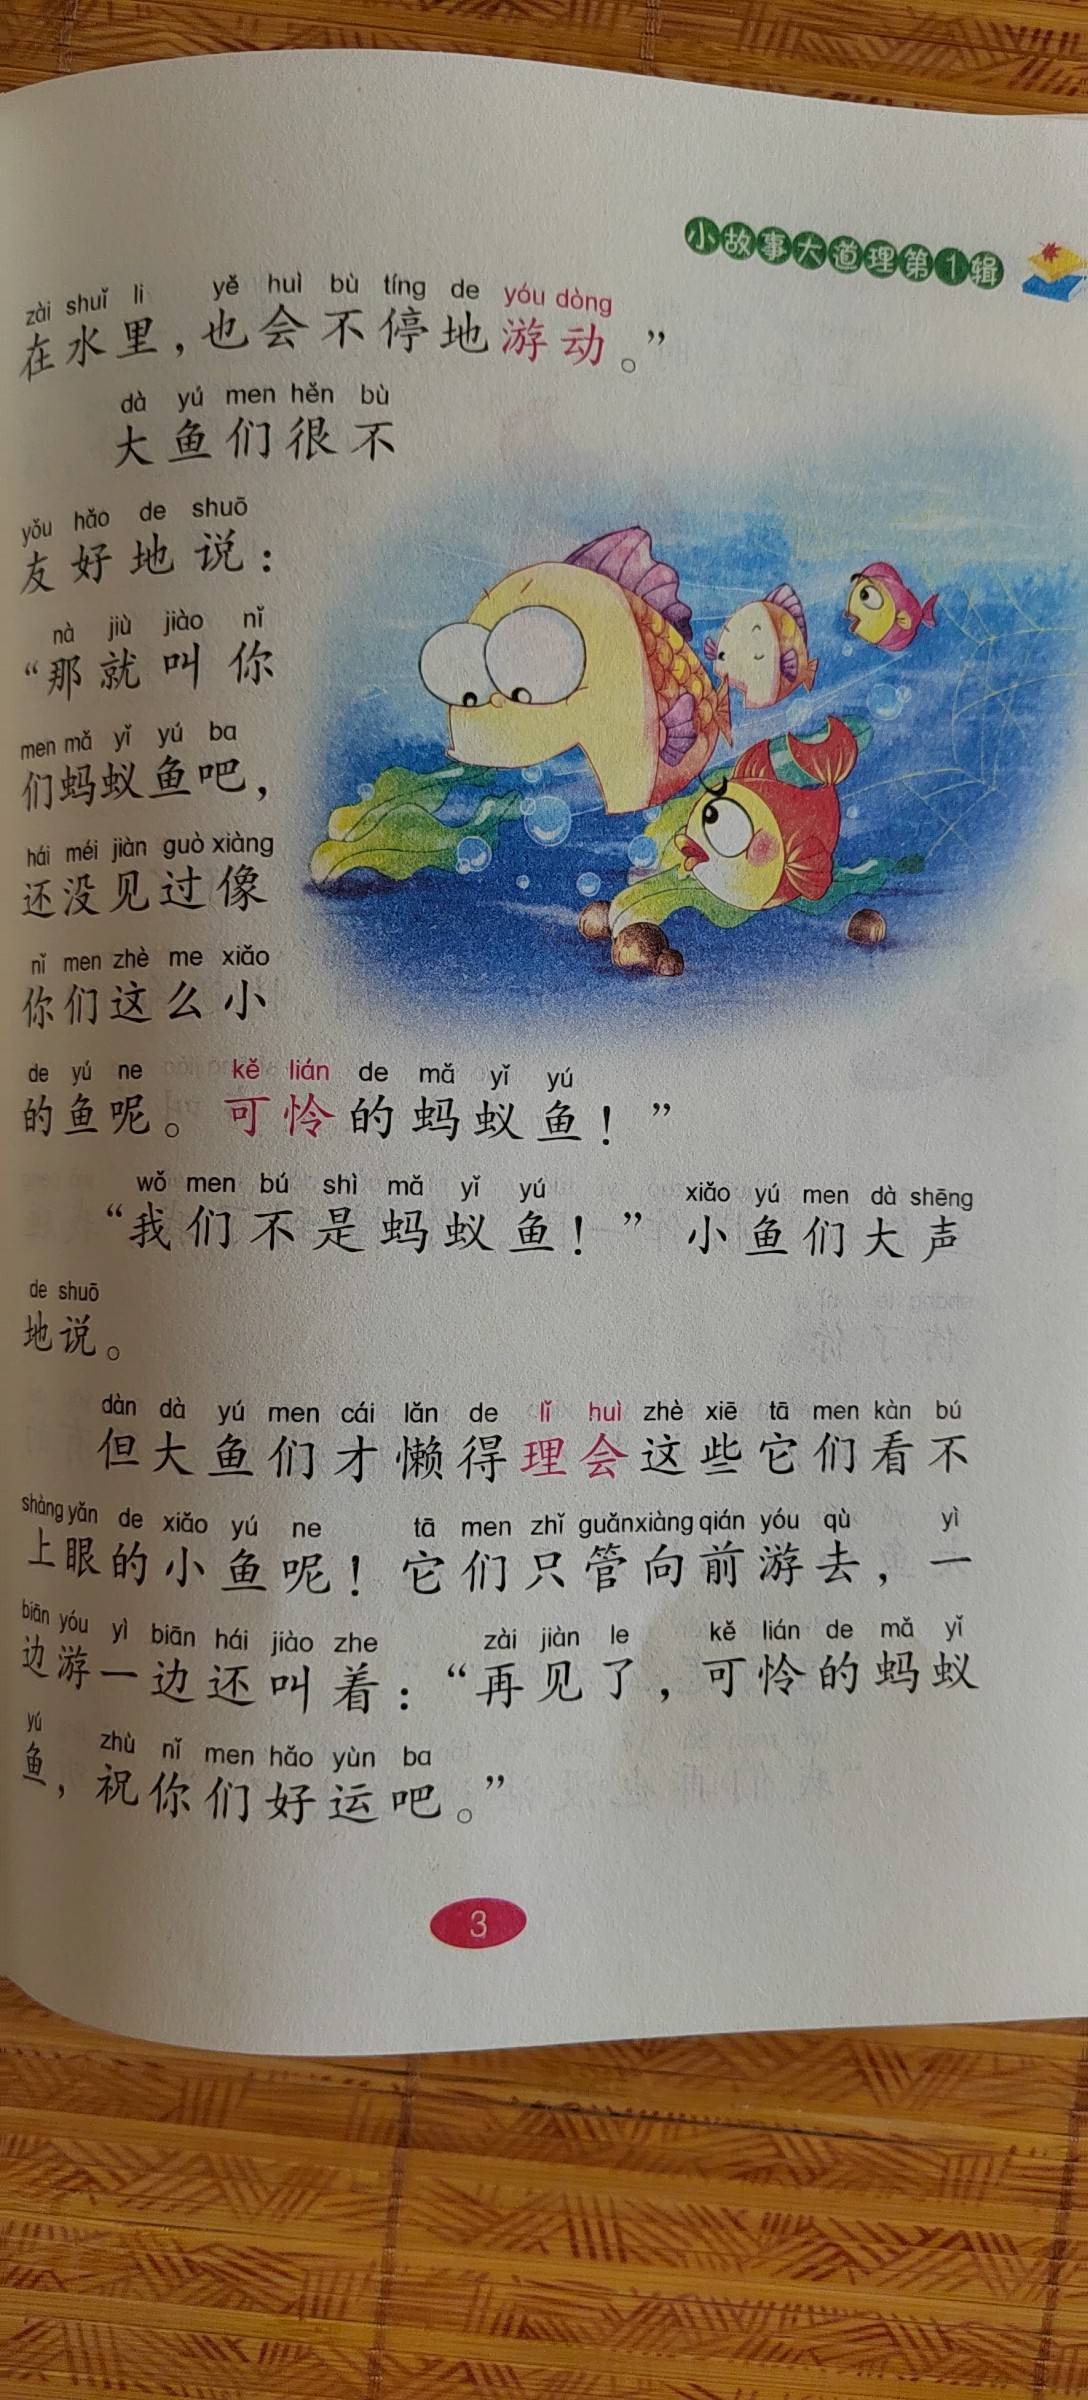 小故事大道理第1辑
zài shuǐ li yě huì bù tíng de yóu dòng
在水里，也会不停地游动。”
dà yú men hěn bù
大鱼们很不
yǒu hǎo de shuō
友好地说：
nà jiù jiào nǐ
“那就叫你
men mǎ yǐ yú ba
们蚂蚁鱼吧，
hái méi jiàn guò xiàng
还没见过像
nǐ men zhè me xiǎo
你们这么小
de yú ne kě lián de mǎ yǐ yú
的鱼呢。可怜的蚂蚁鱼！”
wǒ men bú shì mǎ yǐ yú xiǎo yú men dà shēng
“我们不是蚂蚁鱼！”小鱼们大声
de shuō
地说。
dàn dà yú men cái lǎn de lǐ huì zhè xiē tā men kàn bú
但大鱼们才懒得理会这些它们看不
shàng yǎn de xiǎo yú ne tā men zhǐ guǎn xiàng qián yóu qù yì
上眼的小鱼呢！它们只管向前游去，一
biān yóu yì biān hái jiào zhe zài jiàn le kě lián de mǎ yǐ
边游一边还叫着：“再见了，可怜的蚂蚁
yú zhù nǐ men hǎo yùn ba
鱼，祝你们好运吧。”
3